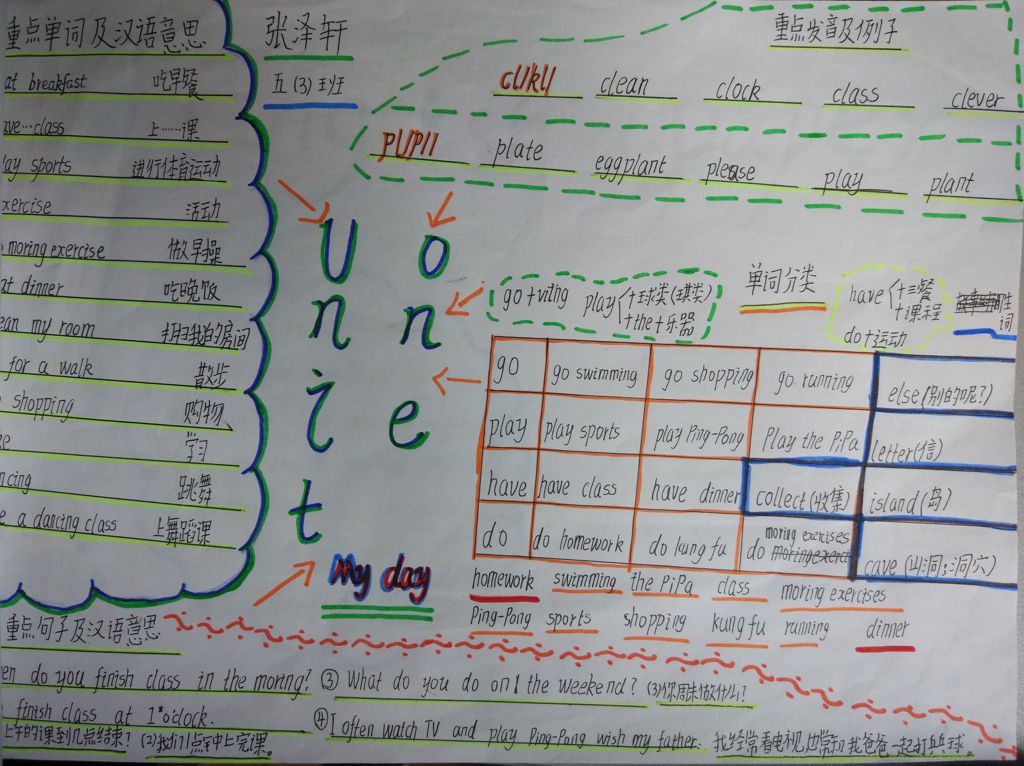 重点单词及汉语意思
at breakfast 吃早餐
ave…class 上……课
lay sports 进行体育运动
xercise 活动
moring exercise 做早操
at dinner 吃晚饭
ean my room 打扫我的房间
for a walk 散步
shopping 购物
学习
ncing 跳舞
e a dancing class 上舞蹈课
张泽轩
五(3)班
重点发音及例子
cl/kl/ clean clock class clever
pl/pl/ plate eggplant please play plant
Unit
One
My day
单词分类
go+ving play +球类(棋类)
+the+乐器
have +三餐
+课程
do+运动
生词
go go swimming go shopping go running else(别的呢?)
play play sports play Ping-Pong Play the PiPa letter(信)
have have class have dinner collect(收集) island(岛)
do do homework do kung fu do moring exercises cave(山洞;洞穴)
homework swimming the PiPa class moring exercises
Ping-Pong sports shopping kung fu running dinner
重点句子及汉语意思
en do you finish class in the moring?
finish class at 1 o'clock.
上午的课到几点结束? (2)我们1点钟上完课。
③ What do you do on the weekend? (3)你周末做什么?
④ I often watch TV and play Ping-Pong wish my father. 我经常看电视,也常和我爸爸一起打乒乓球。